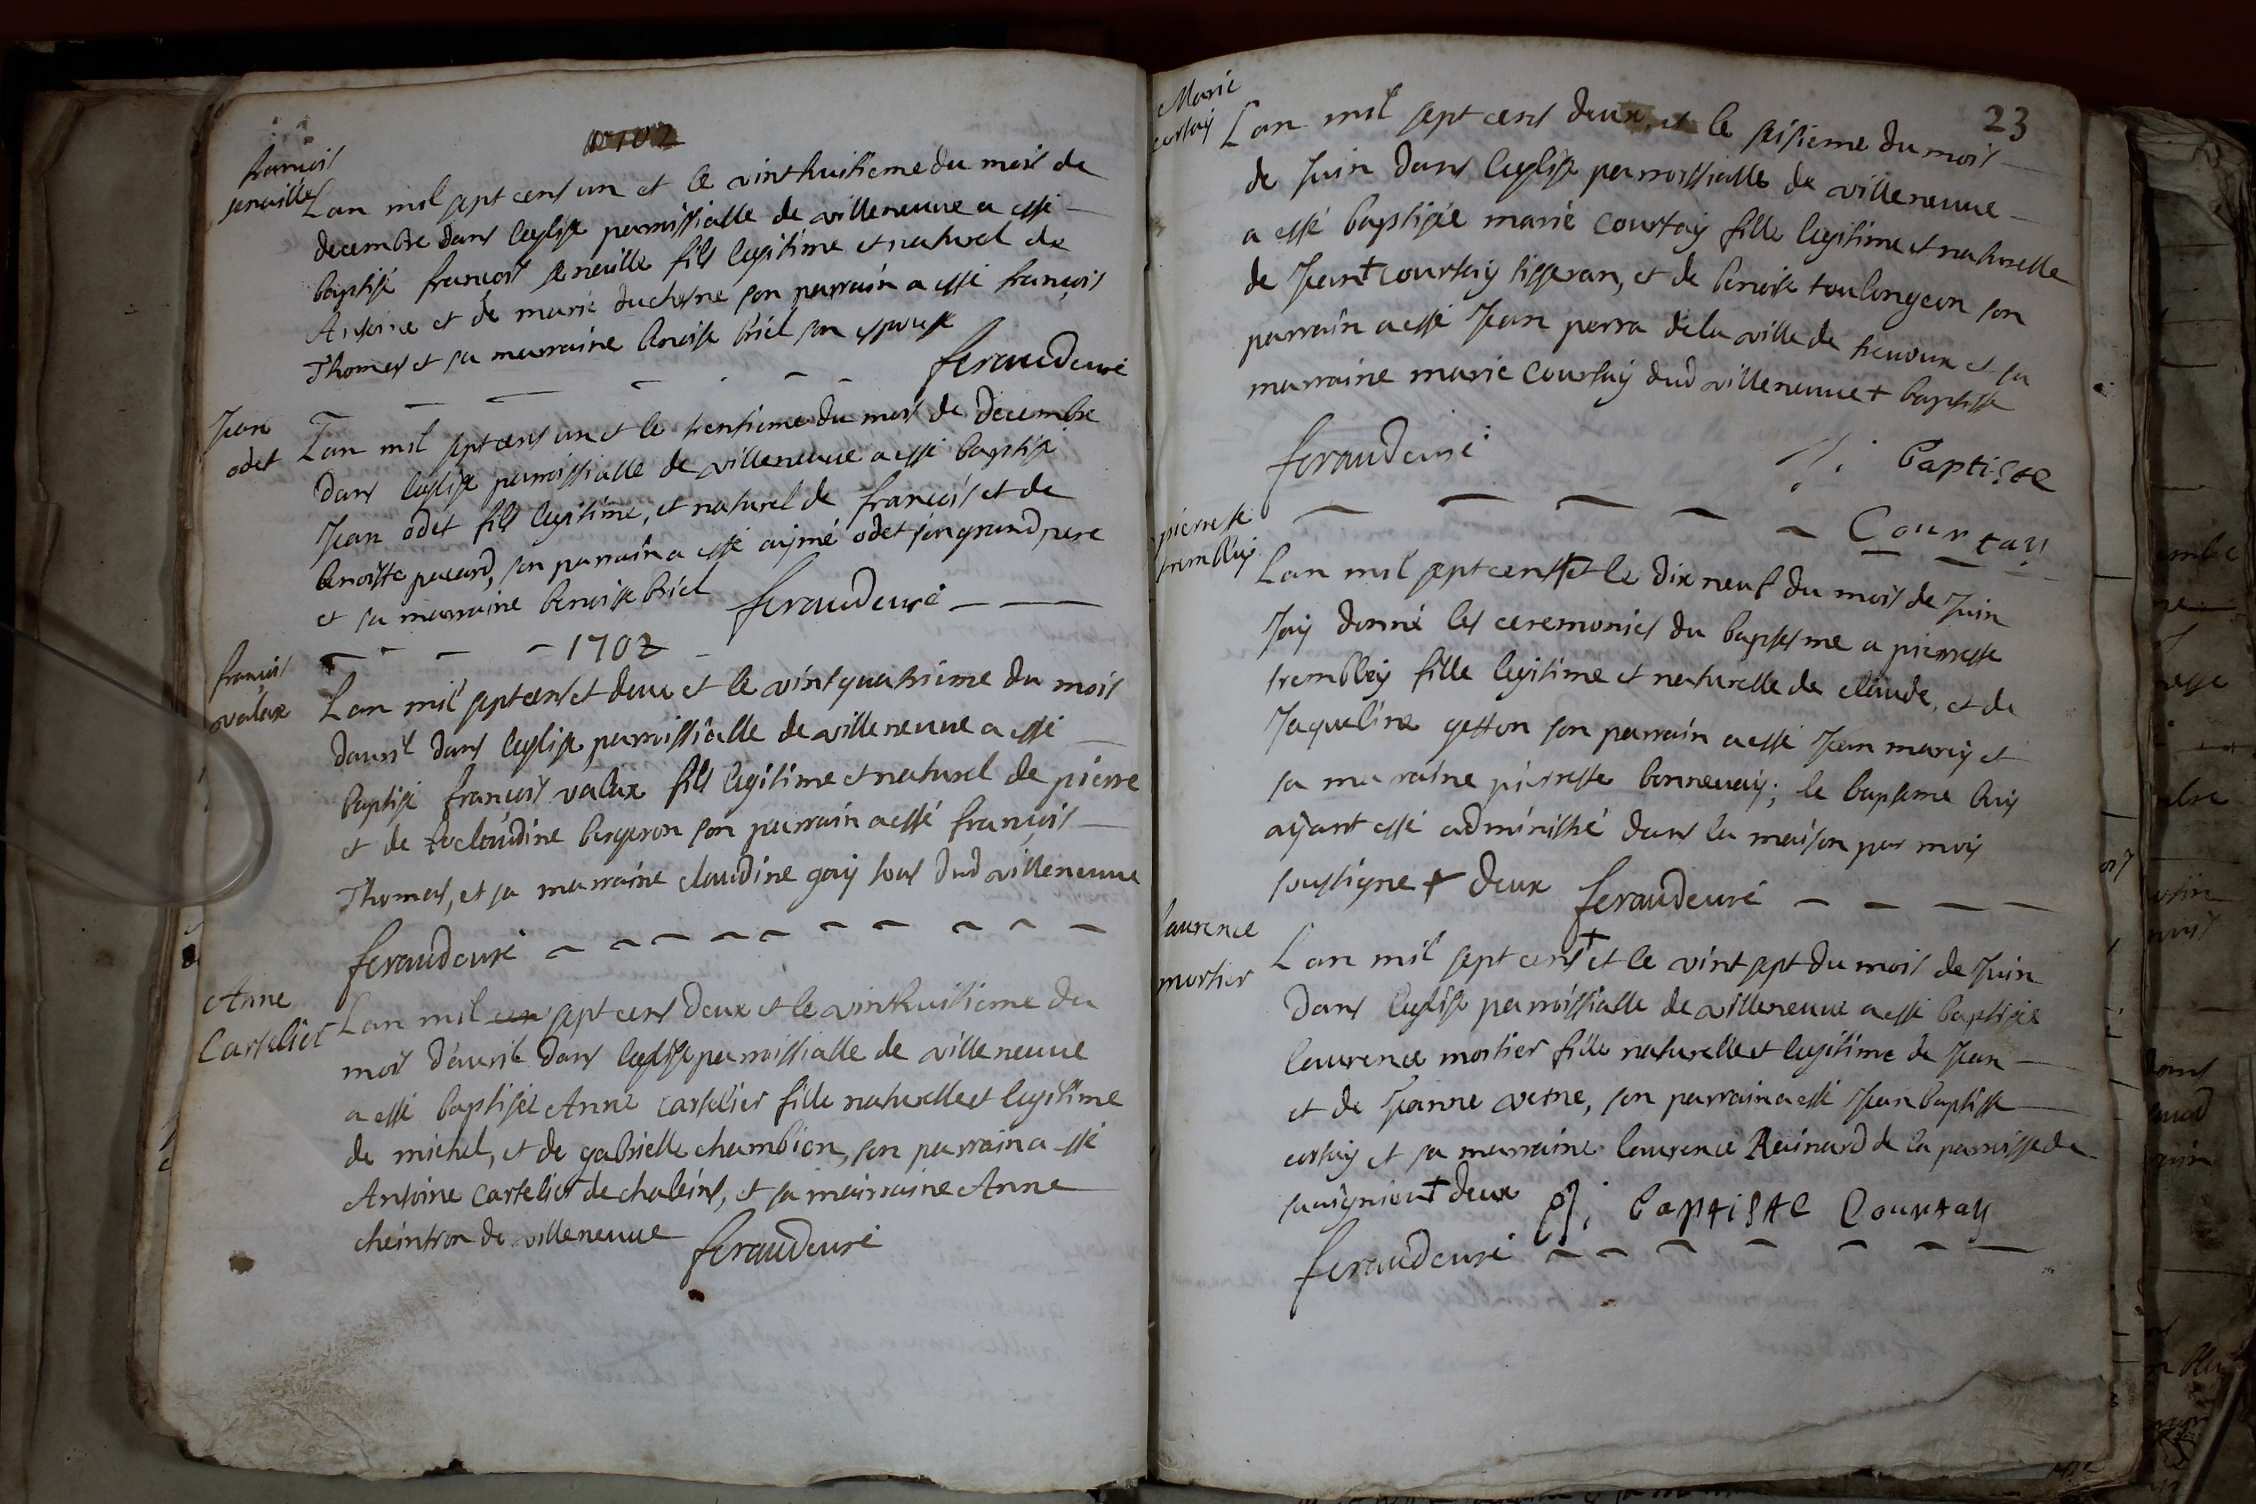 1702
françois
seneuille
Lan mil sept cens un et le vint huitieme du mois de
decembre dans leglise parroissialle de villeneuue a esté
baptisé françois seneuille fils legitime et naturel de
Antoine et de marie duchesne son parrain a esté françois
Thomas et sa marraine benoiste briel son espouse
feraud curé
Jean
odet
Lan mil sept cens un et le trentieme du mois de decembre
dans leglise parroissialle de villeneuue a esté baptisé
Jean odet fils legitime, et naturel de françois et de
benoiste pacard, son parrain a esté aymé odet son grand pere
et sa marraine benoiste briel feraud curé
1702
françois
valax
Lan mil sept cens et deux et le vint quatrieme du mois
dauril dans leglise parroissialle de villeneuue a esté
baptisé françois valax fils legitime et naturel de pierre
et de claudine bergeron son parrain a esté françois
Thomas, et sa marraine claudine gay tous dud villeneuue
feraud curé
Anne
Cartelier
Lan mil cen sept cens deux et le vint huitieme du
mois dauril dans leglise parroissialle de villeneuue
a esté baptisée Anne cartelier fille naturelle et legitime
de michel, et de gabrielle chambion, son parrain a esté
Antoine cartelier de chaleins, et sa marraine Anne
cheintron de villeneuue feraud curé
23
Marie
cortay
Lan mil sept cens deux et le seisieme du mois
de Juin dans leglise parroissialle de villeneuue
a esté baptisée marie courtay fille legitime et naturelle
de Jean + courtay tisseran, et de benoiste toulongeon son
parrain a esté Jean perra de la ville de treuoux et sa
marraine marie courtay dud villeneuue + baptiste
feraud curé
baptiste
Courtay
pierreste
tremblay
Lan mil sept cens + et le dix neuf du mois de Juin
Jay donné les ceremonies du baptesme a pierreste
tremblay fille legitime et naturelle de claude, et de
Jaqueline getton son parrain a esté Jean mariy et
sa marraine pierreste bonneuay; le bapteme luy
ayant esté administré dans la maison par moy
soussigné + deux feraud curé
laurence
mortier
Lan mil sept cens + et le vint sept du mois de Juin
dans leglise parroissialle de villeneuue a esté baptisée
laurence mortier fille naturelle et legitime de Jean
et de Jeanne verne, son parrain a esté Jean baptiste
cortay et sa marraine laurence Rainard de la parroisse de
sauignieu + deux baptiste Courtay
feraud curé